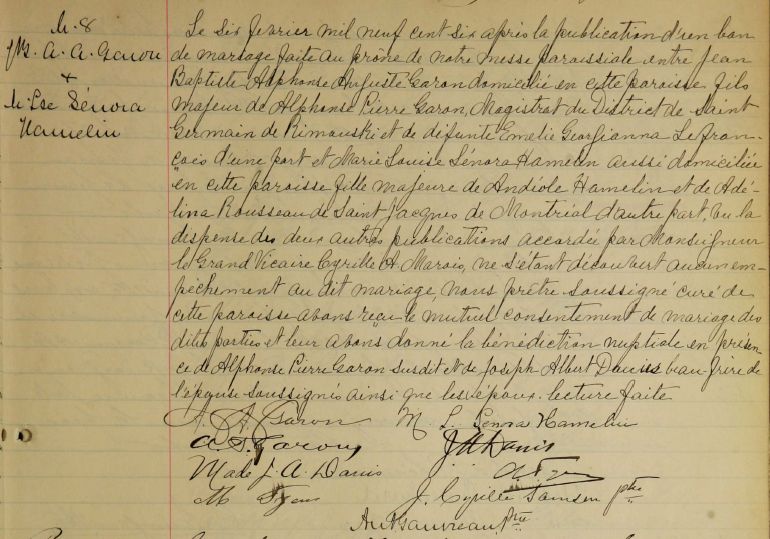 M. 8
JBte. A. A. Garon
+
M. Lse Sénora
Hamelin
Le six fevrier mil neuf cent six après la publication d'un ban
de mariage faite au prône de notre messe paroissiale entre Jean
Baptiste Alphonse Auguste Garon domicilié en cette paroisse fils
majeur de Alphonse Pierre Garon, Magistrat du District de Saint
Germain de Rimouski et de défunte Emelie Georgianna Lefran-
cois d'une part et Marie Louise Sénora Hamelin aussi domiciliée
en cette paroisse fille majeure de Andiole Hamelin et de Adé-
lina Rousseau de Saint Jacques de Montréal d'autre part, vu la
dispense des deux autres publications accordée par Monseigneur
le Grand Vicaire Cyrille A. Marois, ne s'étant découvert aucun em-
pêchement au dit mariage, nous prêtre soussigné curé de
cette paroisse avons reçu le mutuel consentement de mariage des
dites parties et leur avons donné la bénédiction nuptiale en présen-
ce de Alphonse Pierre Garon susdit et de Joseph Albert Danis beau-frère de
l'épouse soussignés ainsi que les époux. lecture faite
A. A. Garon M. L. Senora Hamelin
A. P. Garon J A Danis
Made J. A. Danis
M
J. Cyrille Samson ptre
Ant Gauvreau Ptre